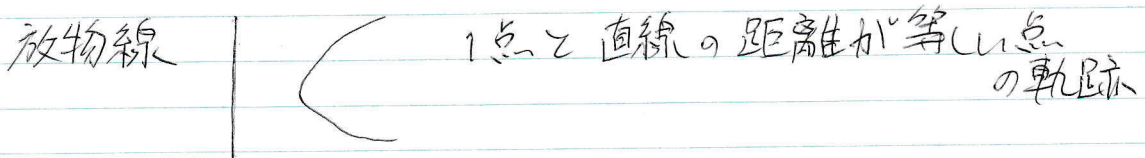 放物線
1点と直線の距離が等しい点
の軌跡